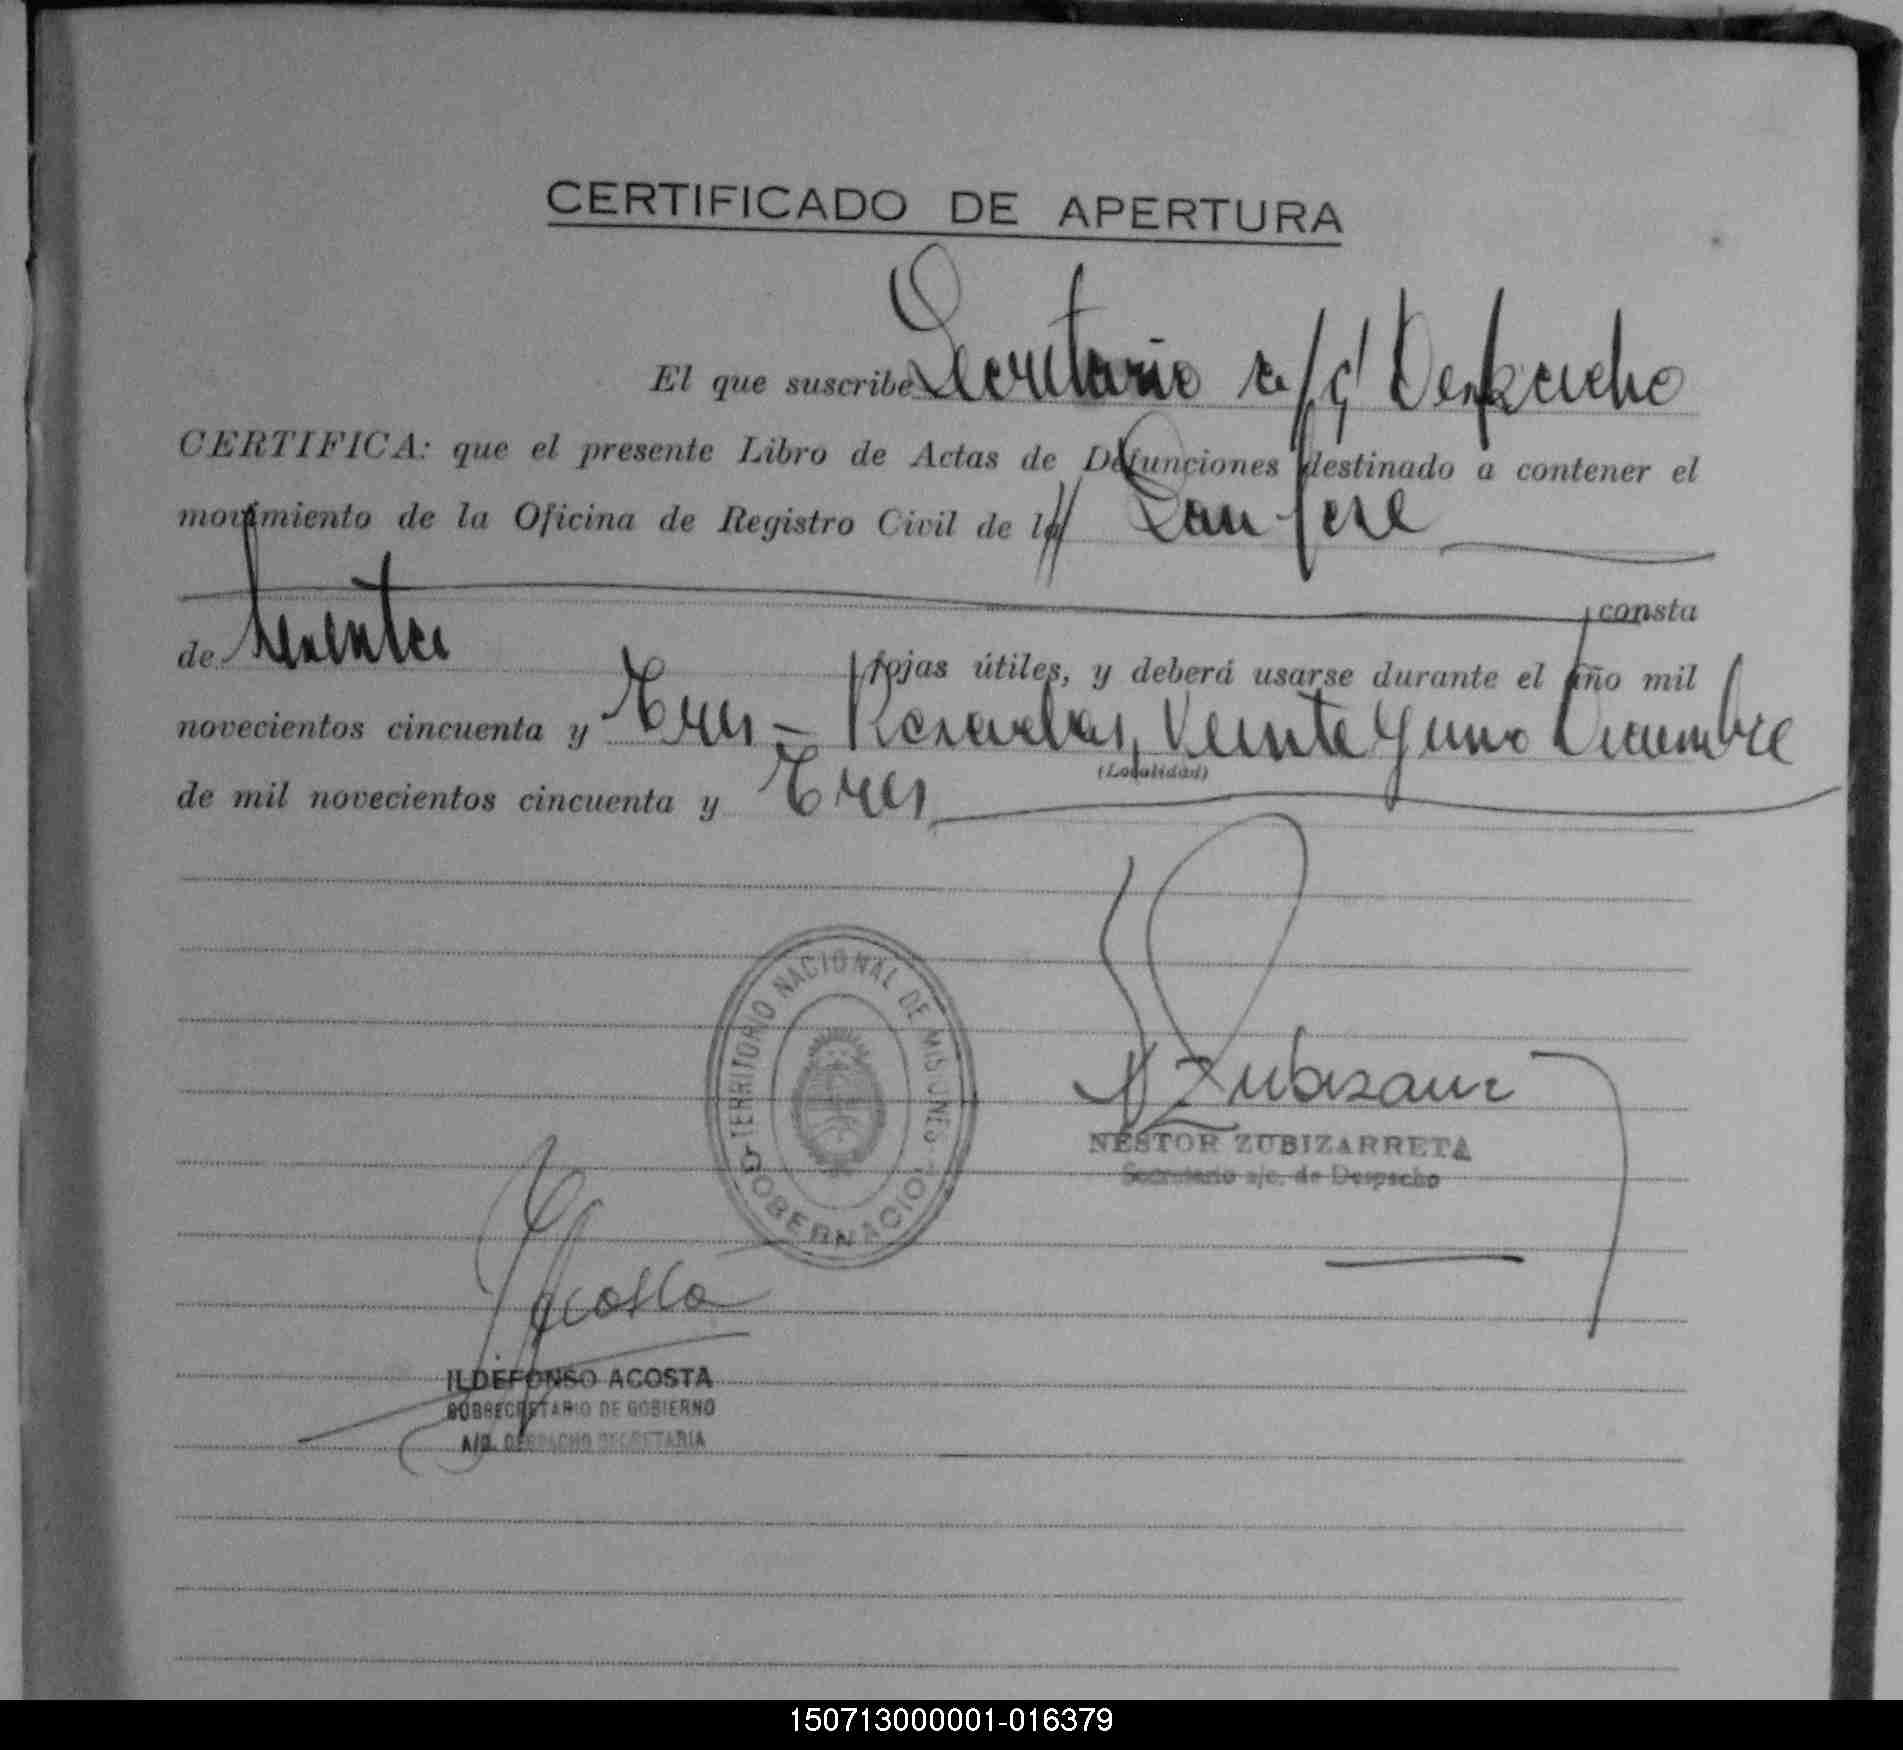 CERTIFICADO DE APERTURA
El que suscribe Secretario a/c Despacho
CERTIFICA: que el presente Libro de Actas de Defunciones destinado a contener el
movimiento de la Oficina de Registro Civil de la San José
consta
de sesenta fojas útiles, y deberá usarse durante el año mil
novecientos cincuenta y Tres - Posadas, Veinte y uno Diciembre
(Localidad)
de mil novecientos cincuenta y Tres
TERRITORIO NACIONAL DE MISIONES
GOBERNACION
NESTOR ZUBIZARRETA
Secretario a/c. de Despacho
Acosta
ILDEFONSO ACOSTA
SUBSECRETARIO DE GOBIERNO
A/C. DESPACHO SECRETARIA
150713000001-016379